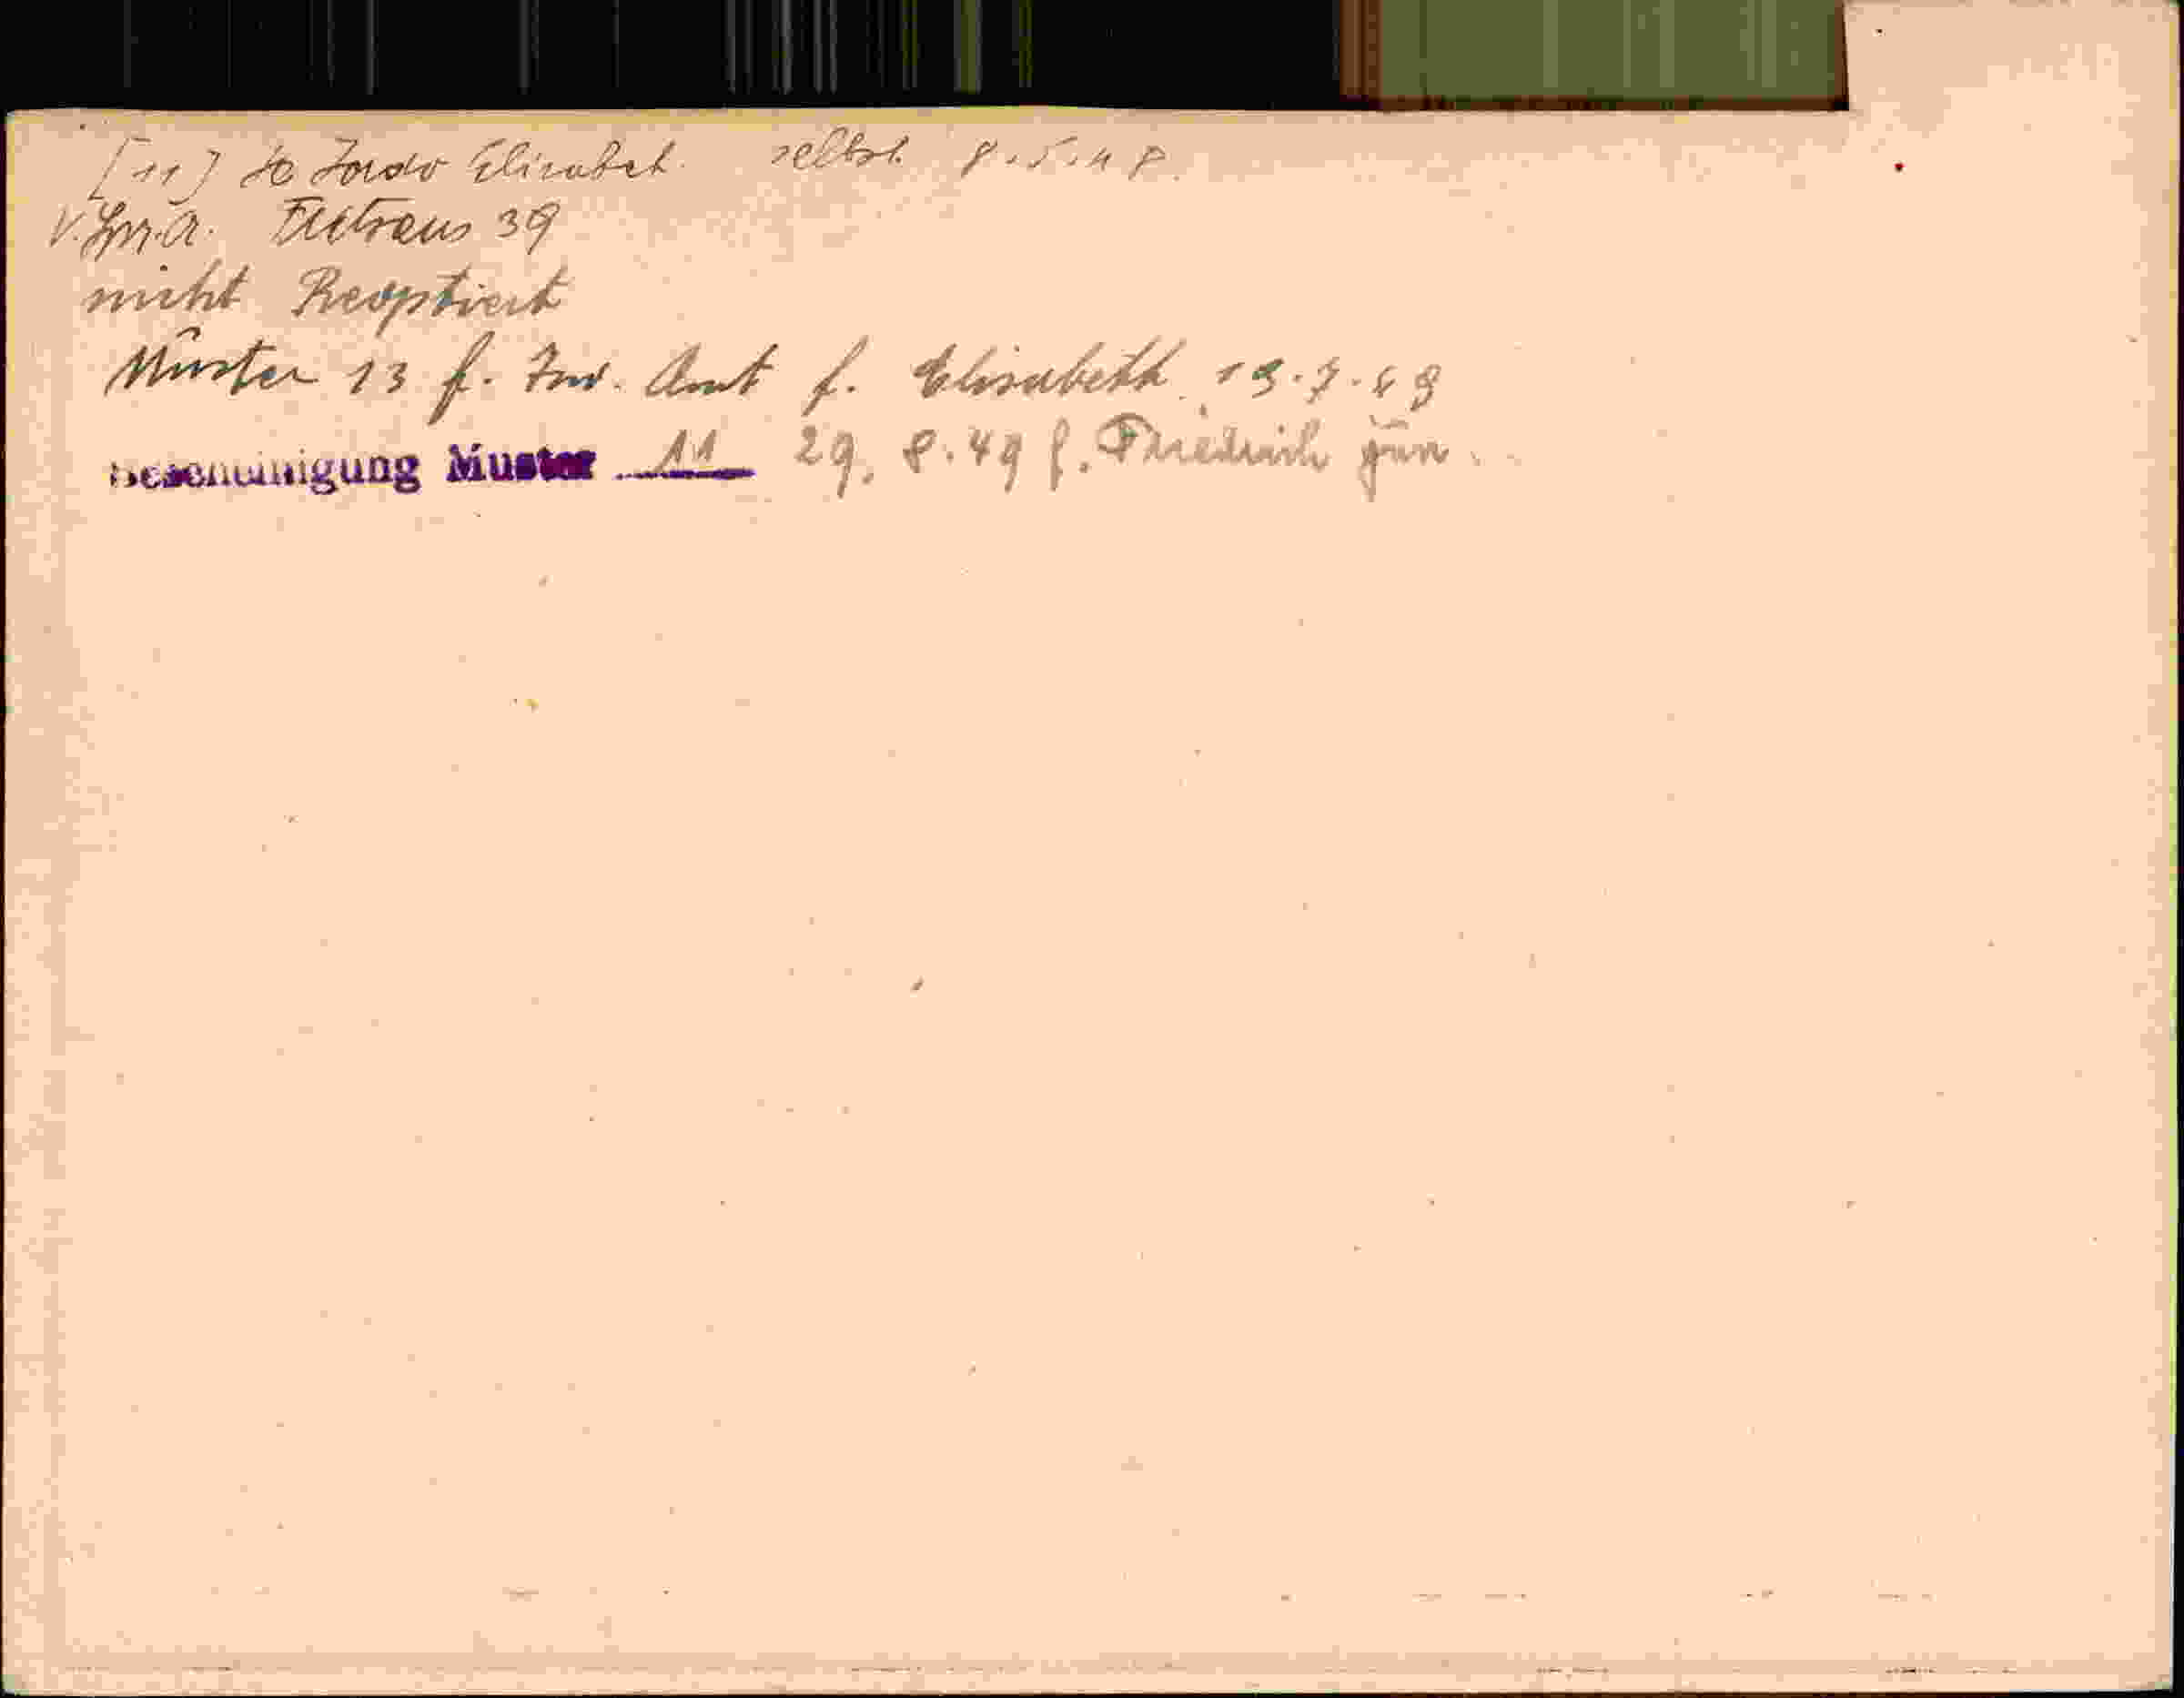 [11] Elisabet. selbst 8.5.48.
39
nicht Reoptiert
Muster 13 f. Inv. Amt f. Elisabeth 19.7.49
Bescheinigung Muster 11 29.8.49 f. Friedrich jun.